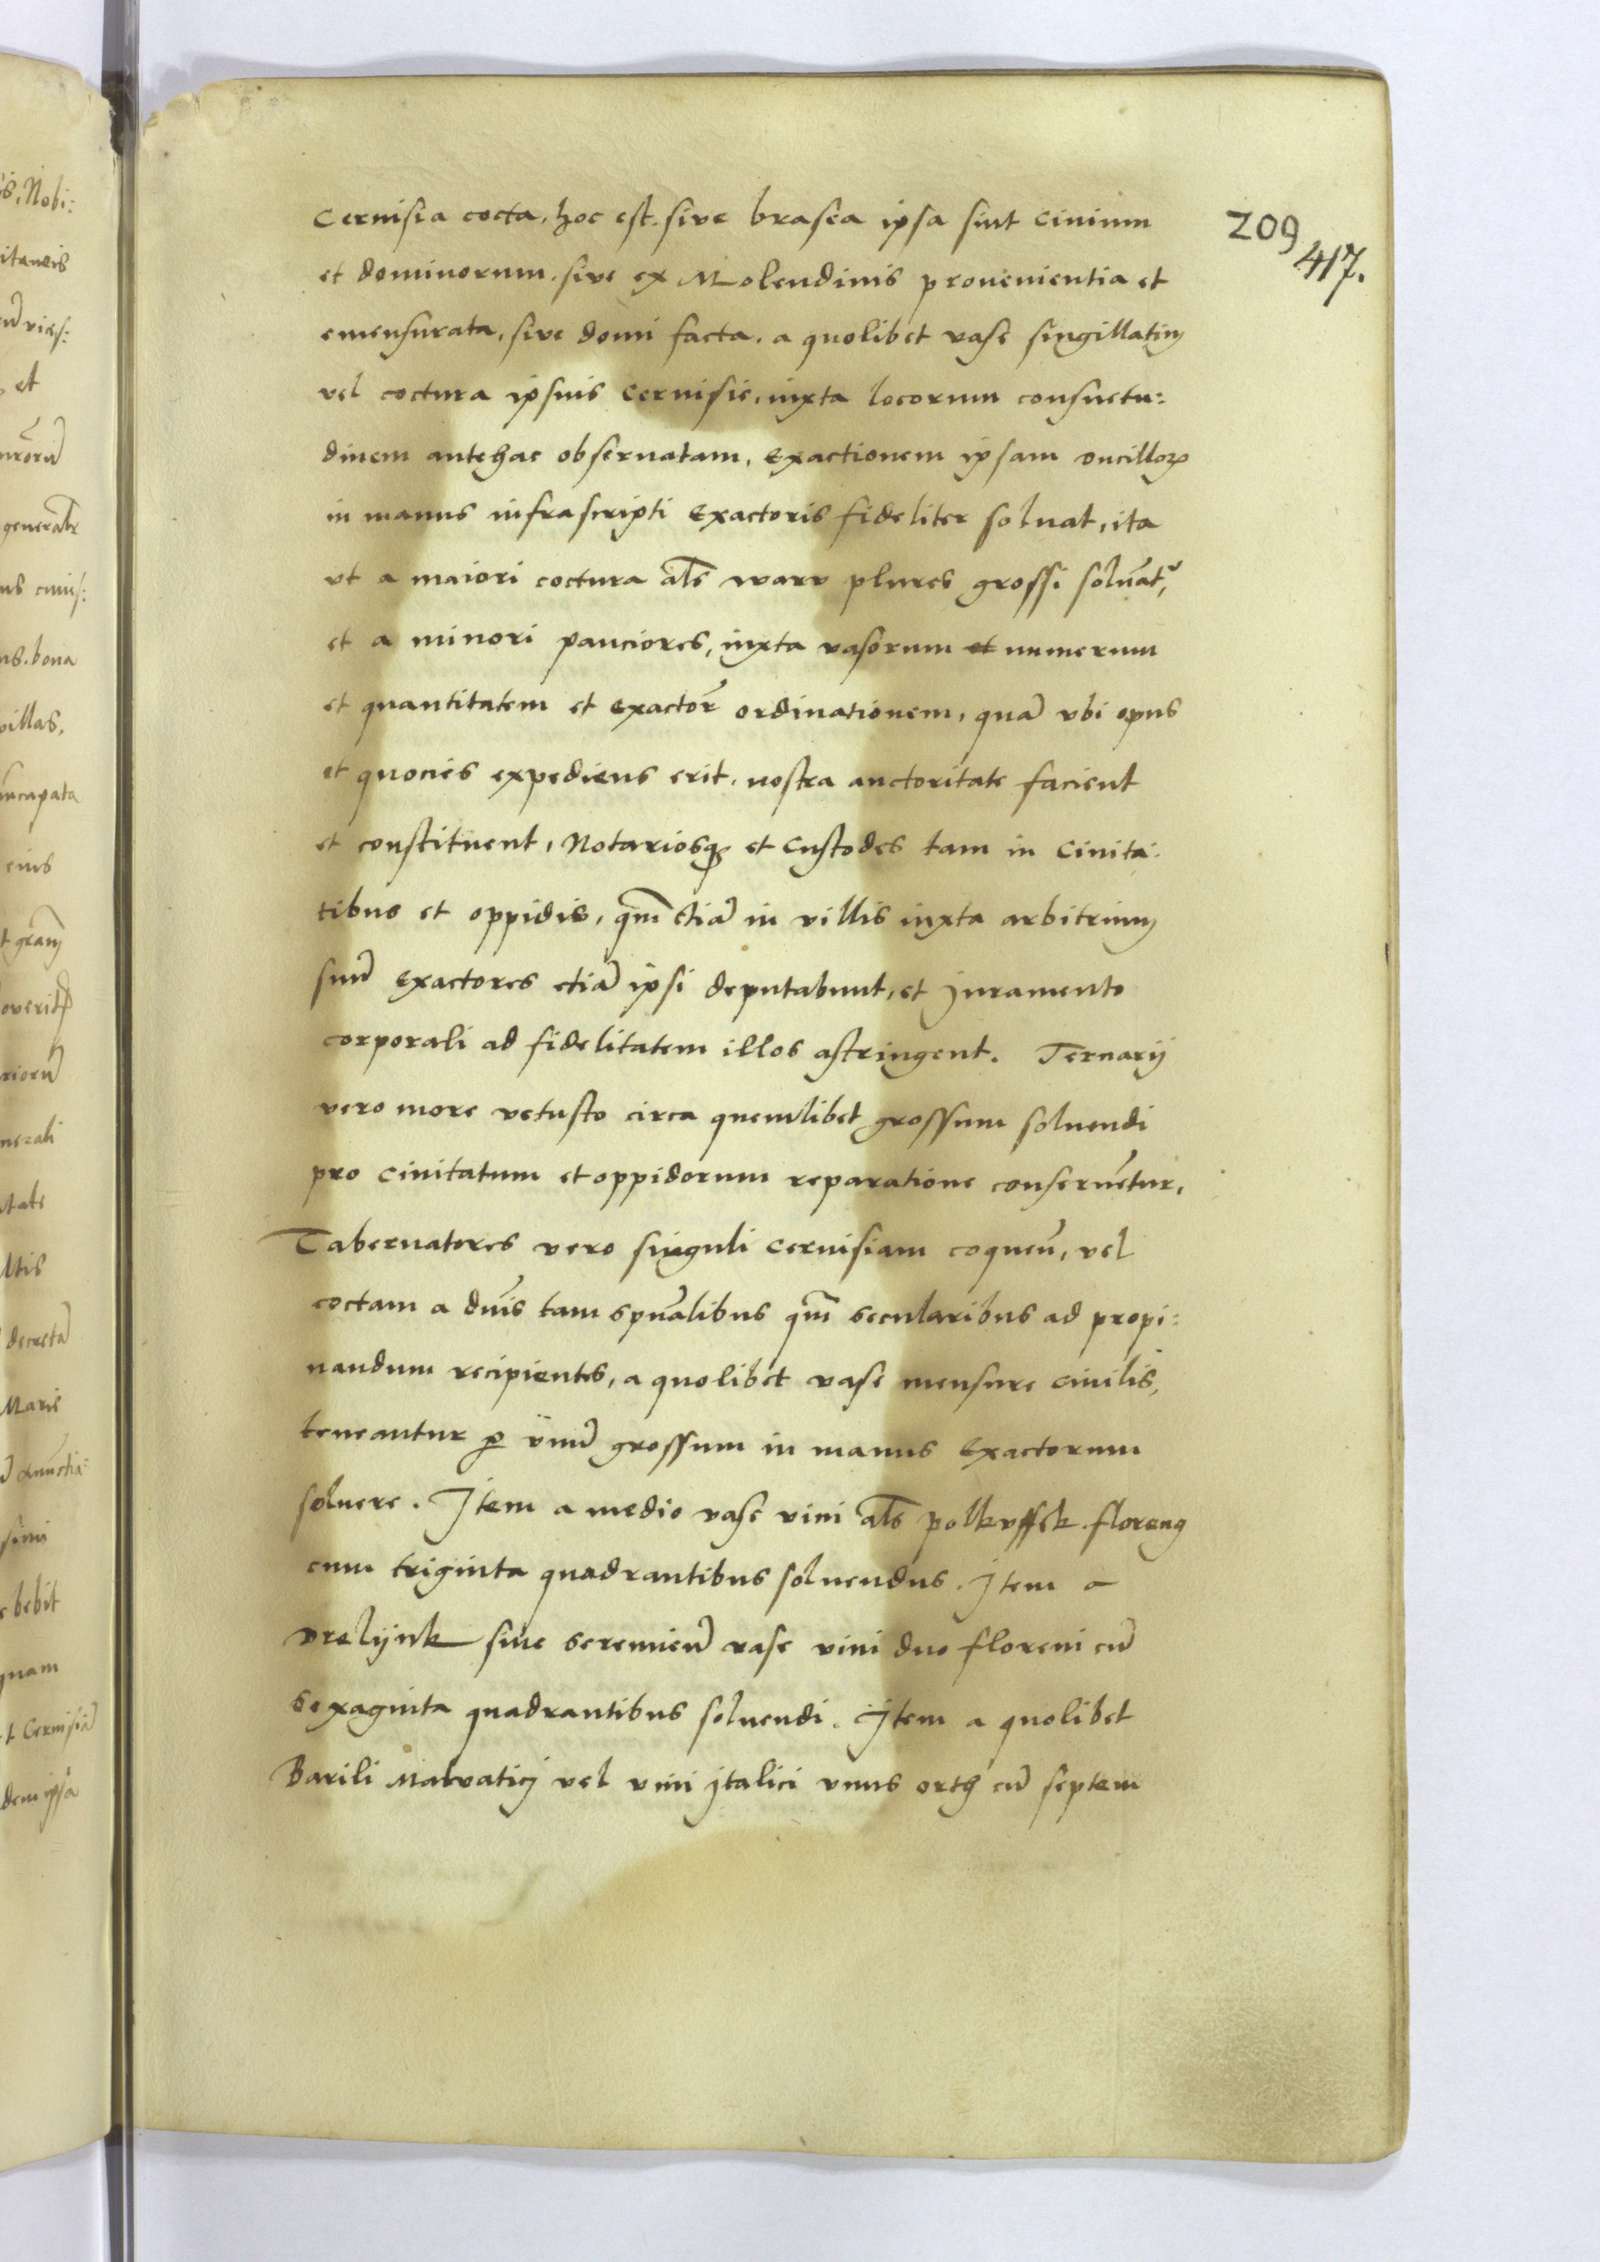 209
417.
Ceruisia cocta, hoc est. siue brasea ipsa sint Ciuium
et dominorum. siue ex Molendinis prouenientia et
emensurata, siue domi facta. a quolibet vase singillatim
vel coctura ipsius Ceruisie, iuxta locorum consuetu:
dinem antehac obseruatam, Exactionem ipsam ducillorꝝ
in manus infrascripti Exactoris fideliter soluat, ita
vt a maiori coctura al̃s warv plures grossi soluãt᷑,
et a minori pauciores, iuxta vasorum et numerum
et quantitatem et Exactor̃ ordinationem, quã vbi opus
et quocies expediens erit. nostra auctoritate facient
et constituent, Notariosqꝫ et Custodes tam in Ciuita:
tibus et oppidis, qm̃ etiã in villis iuxta arbitrium
suũ Exactores etiã ipsi deputabunt, et Juramento
corporali ad fidelitatem illos astringent. Ternarij
vero more vetusto circa quemlibet grossum soluendi
pro Ciuitatum et oppidorum reparatione conseruẽtur,
Tabernatores vero singuli Ceruisiam coqueñ, vel
coctam a dñis tam spũalibus qm̃ secularibus ad propi:
nandum recipientes, a quolibet vase mensure Ciuilis,
teneantur ꝑ vnũ grossum in manus Exactorum
soluere. Item a medio vase vini al̃s polkuffek. florenꝯ
cum triginta quadrantibus soluendus. Item a
drelijnk siue seremieñ vase vini duo floreni cũ
sexaginta quadrantibus soluendi. Item a quolibet
Barili Malvaticj vel vini Jtalici vnus orth cũ septem